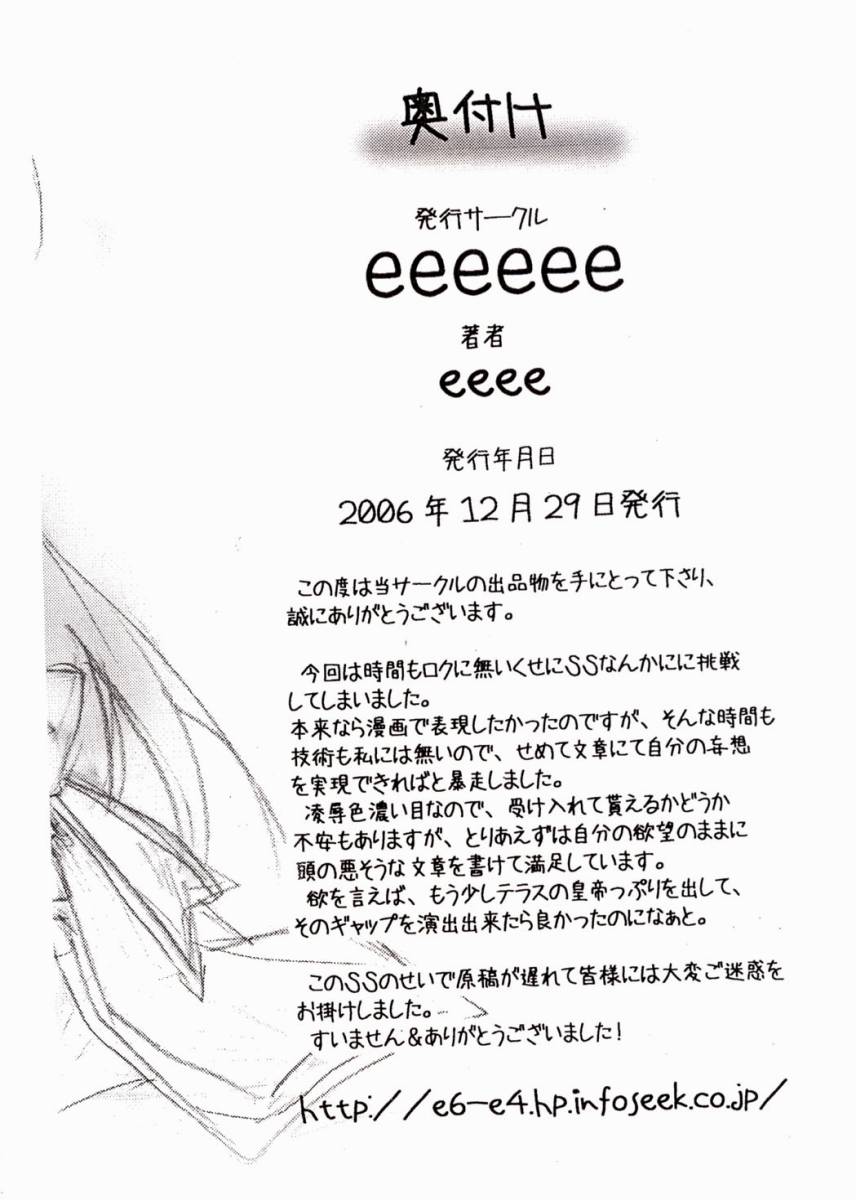 奥付け
発行サークル
eeeeee
著者
eeee
発行年月日
2006年12月29日発行
この度は当サークルの出品物を手にとって下さり、
誠にありがとうございます。
今回は時間もロクに無いくせにSSなんかにに挑戦
してしまいました。
本来なら漫画で表現したかったのですが、そんな時間も
技術も私には無いので、せめて文章にて自分の妄想
を実現できればと暴走しました。
凌辱色濃い目なので、受け入れて貰えるかどうか
不安もありますが、とりあえずは自分の欲望のままに
頭の悪そうな文章を書けて満足しています。
欲を言えば、もう少しテラスの皇帝っぷりを出して、
そのギャップを演出出来たら良かったのになぁと。
このSSのせいで原稿が遅れて皆様には大変ご迷惑を
お掛けしました。
すいません&ありがとうございました!
http://e6-e4.hp.infoseek.co.jp/